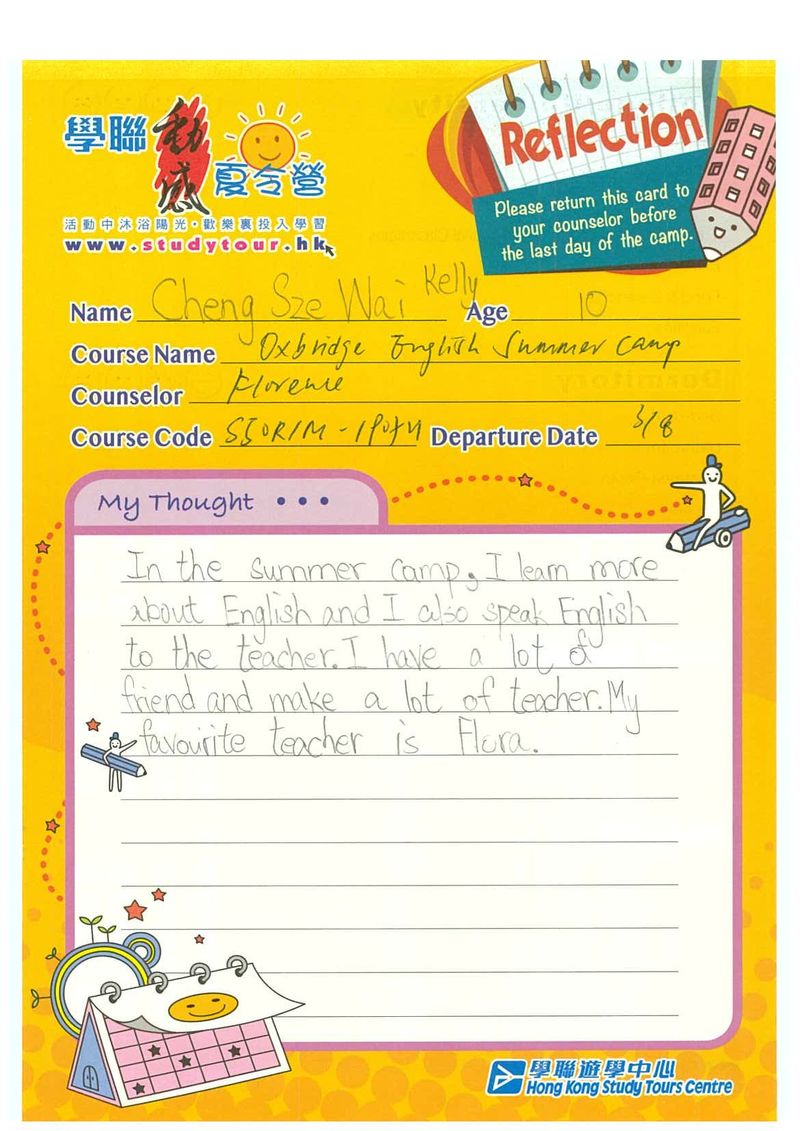 學聯動感夏令營
活動中沐浴陽光・歡樂裏投入學習
www.studytour.hk
Reflection
Please return this card to
your counselor before
the last day of the camp.
Name Cheng Sze Wai Kelly Age 10
Course Name Oxbridge English Summer Camp
Counselor Florence
Course Code Departure Date 3/8
My Thought •••
In the summer camp, I learn more
about English and I also speak English
to the teacher. I have a lot of
friend and make a lot of teacher. My
favourite teacher is Flora.
學聯遊學中心
Hong Kong Study Tours Centre